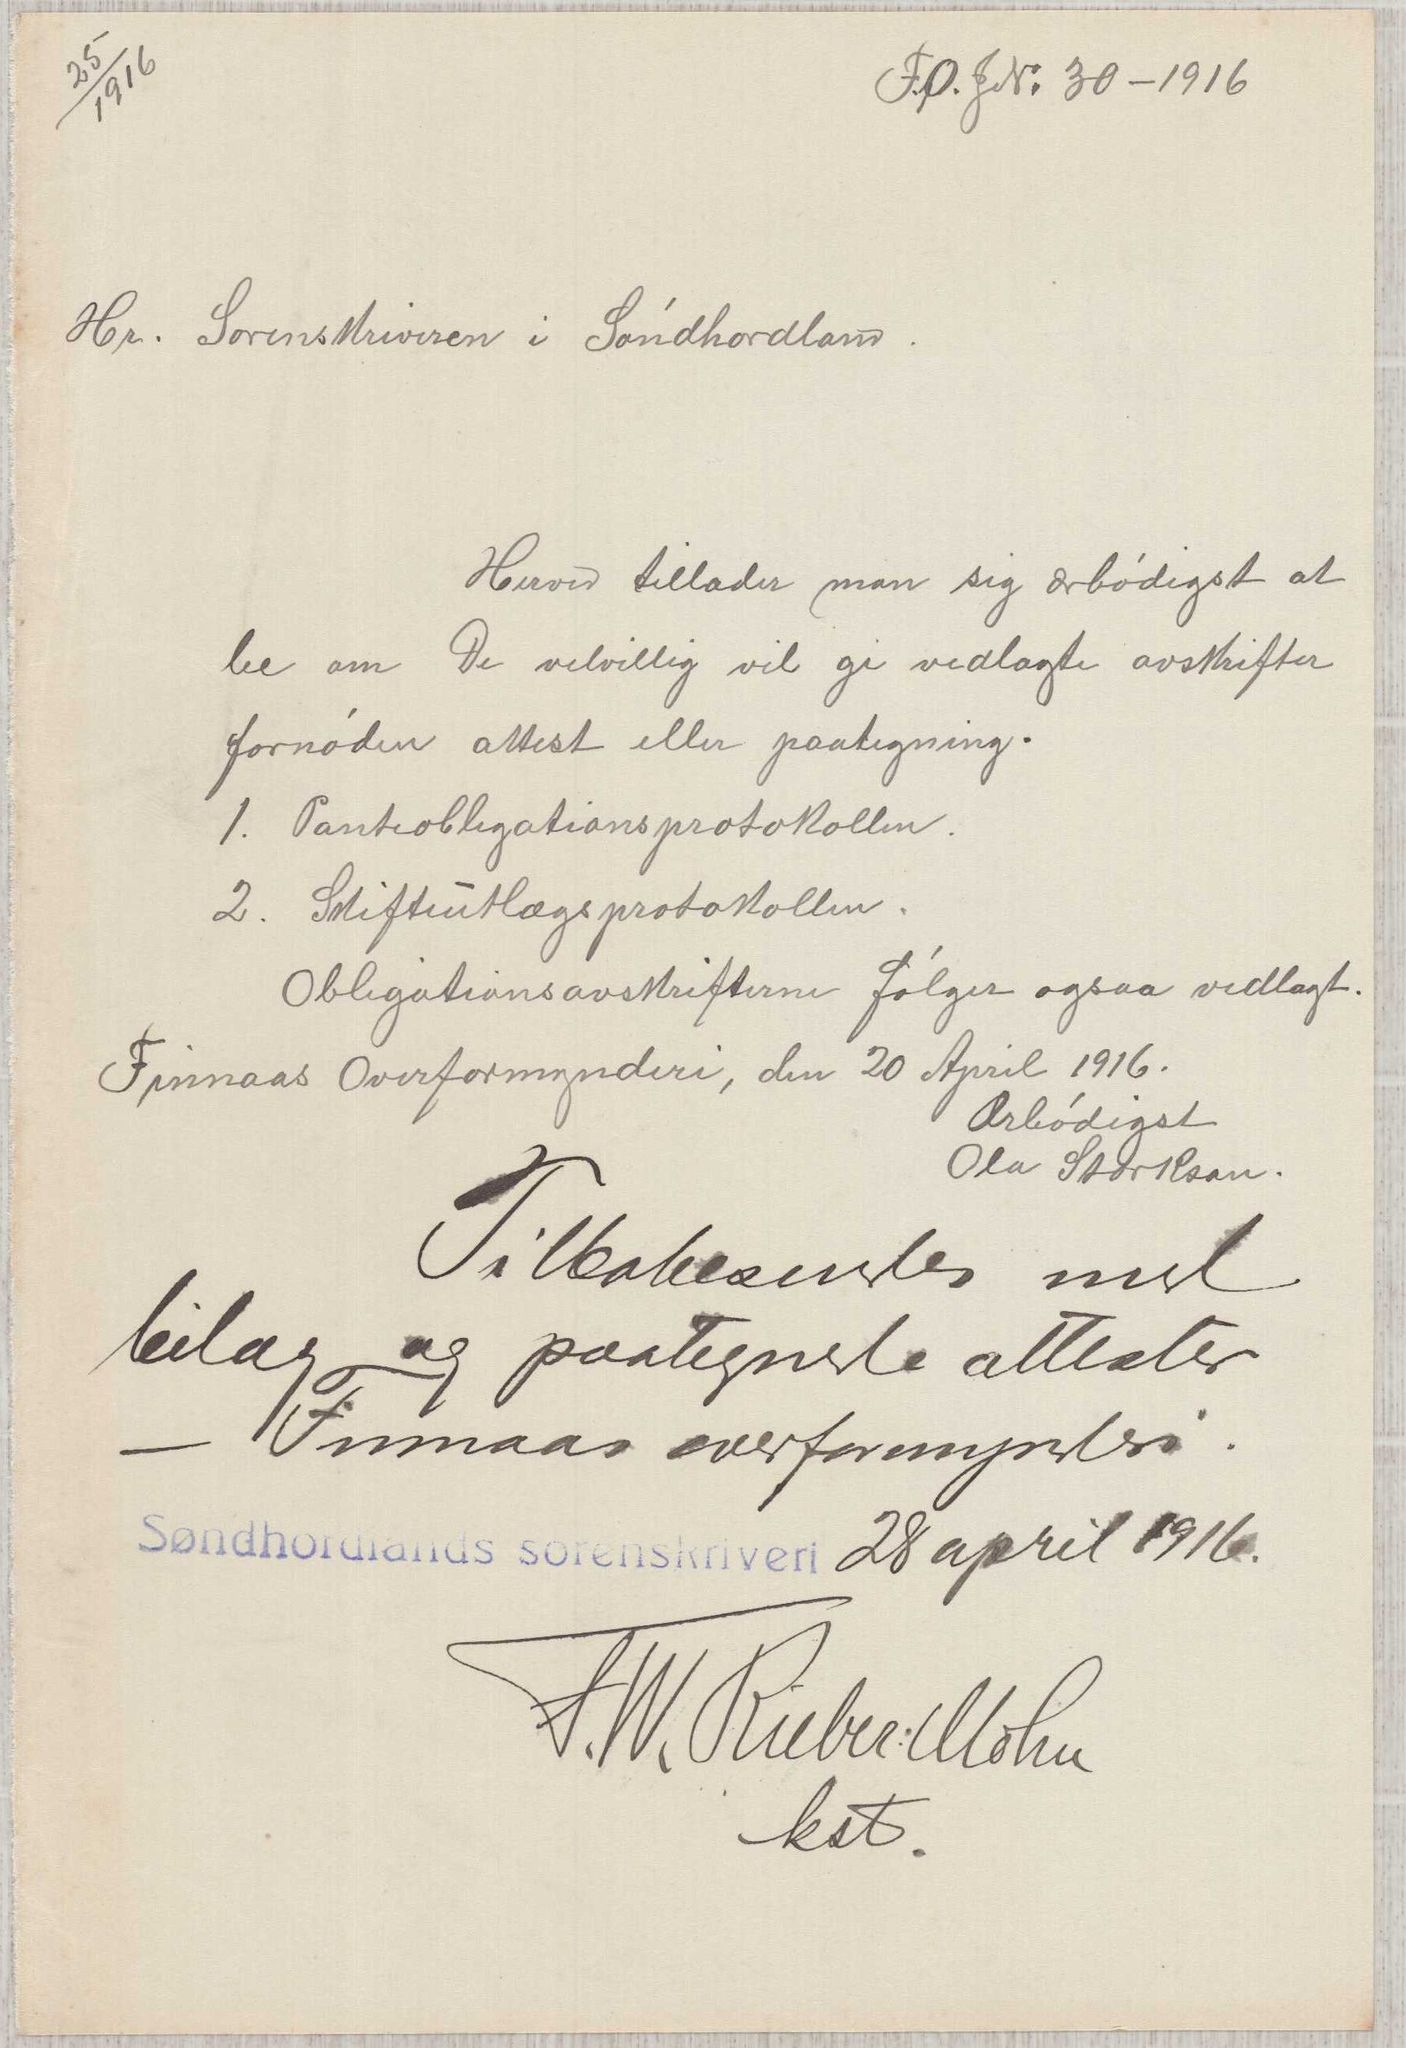 25/1916
F.O. J.Nr. 30 - 1916
Hr. Sorenskriveren i Søndhordland.
Herved tillader man sig ærbødigst at
be om De velvillig vil gi vedlagte avskrifter
fornøden attest eller paategning.
1. Panteobligationsprotokollen.
2. Skifteutlægsprotokollen.
Obligationsavskrifterne følger ogsaa vedlagt.
Finnaas Overformynderi, den 20 April 1916.
Ærbødigst
Ola Størkson.
Tilbakesendes med
bilag og paategnede attester
— Finnaas overformynderi.
Søndhordlands sorenskriveri 28 april 1916.
F.W. Rieber-Mohn
kst.